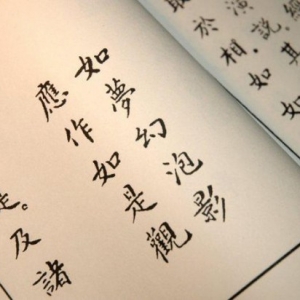 演說。其
於相。如如
如夢幻泡影
應作如是觀
及諸